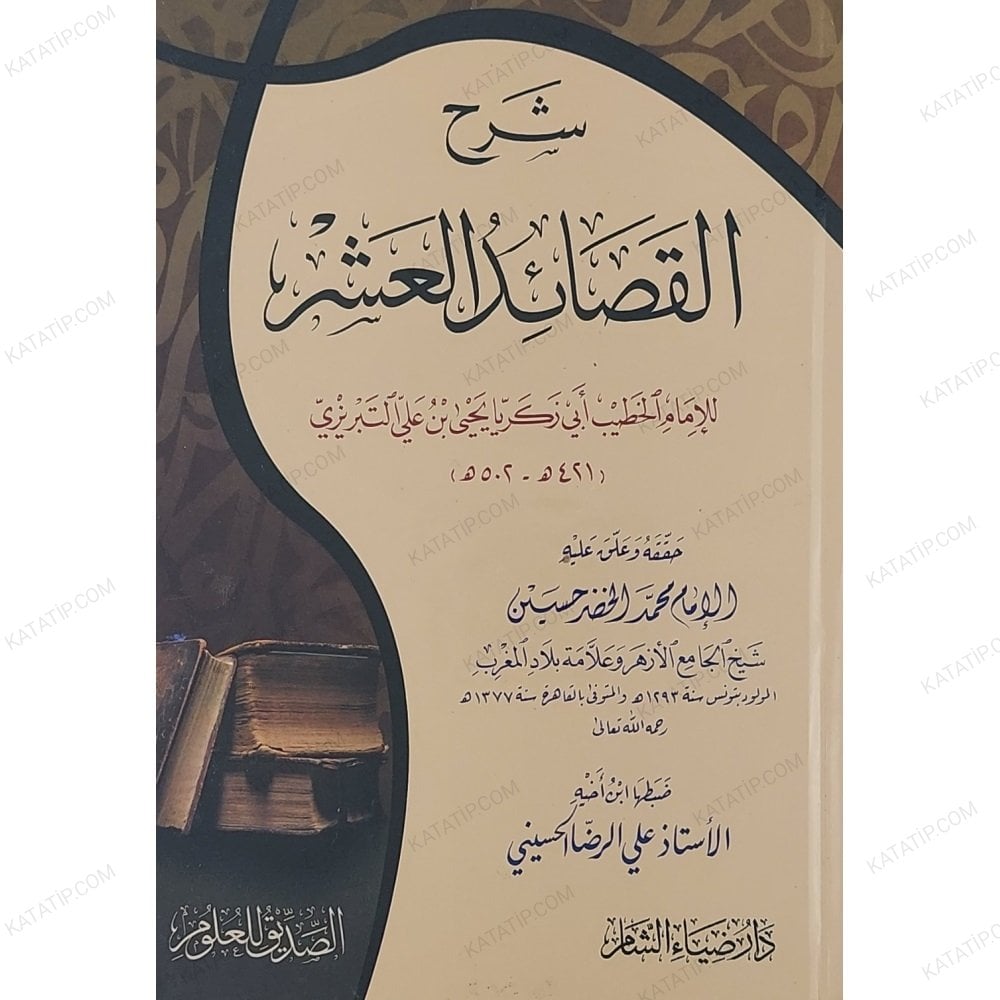 شرح
القصائد العشر
للإمام الخطيب أبي زكريا يحيى بن علي التبريزي
(٤٢١ هـ - ٥٠٢ هـ)
حققه وعلق عليه
الإمام محمد الخضر حسين
شيخ الجامع الأزهر وعلامة بلاد المغرب
المولود بتونس سنة ١٢٩٣ هـ والمتوفى بالقاهرة سنة ١٣٧٧ هـ
رحمه الله تعالى
ضبطها ابن أخيه
الأستاذ علي الرضا الحسيني
دار ضياء الشام
الصديق للعلوم
KATATIP.COM